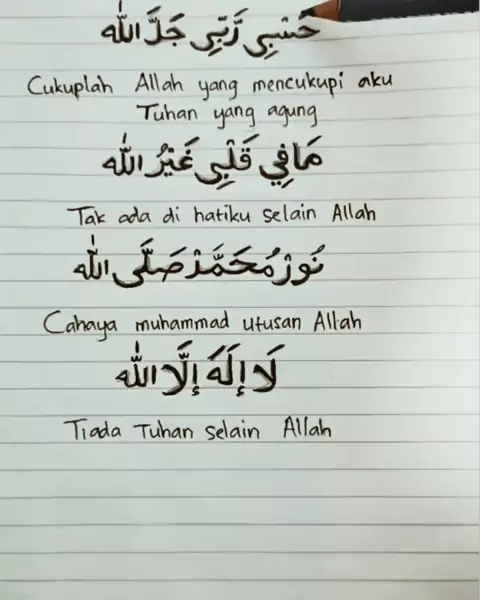 حَسْبِي رَبِّي جَلَّ اللّٰه
Cukuplah Allah yang mencukupi aku
Tuhan yang agung
مَا فِي قَلْبِي غَيْرُ اللّٰه
Tak ada di hatiku selain Allah
نُوْرْ مُحَمَّدْ صَلَّى اللّٰه
Cahaya muhammad utusan Allah
لَا إِلَهَ إِلَّا اللّٰه
Tiada Tuhan selain Allah